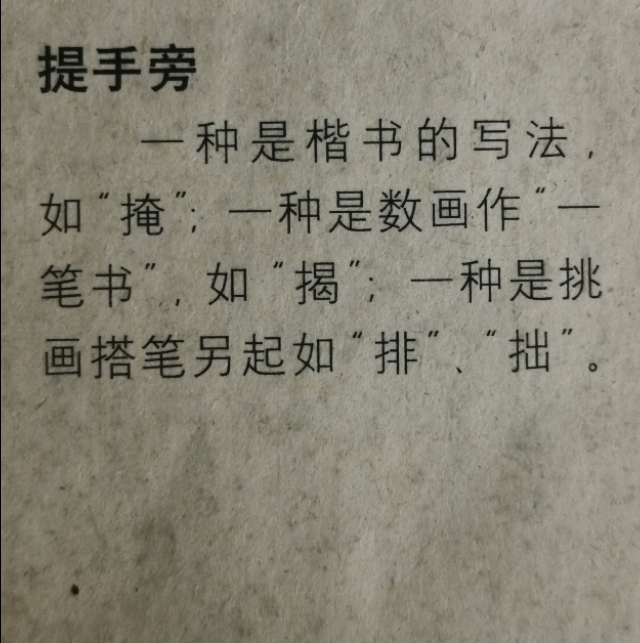 提手旁
一种是楷书的写法，
如“掩”；一种是数画作“一
笔书”，如“揭”；一种是挑
画搭笔另起如“排”、“拙”。